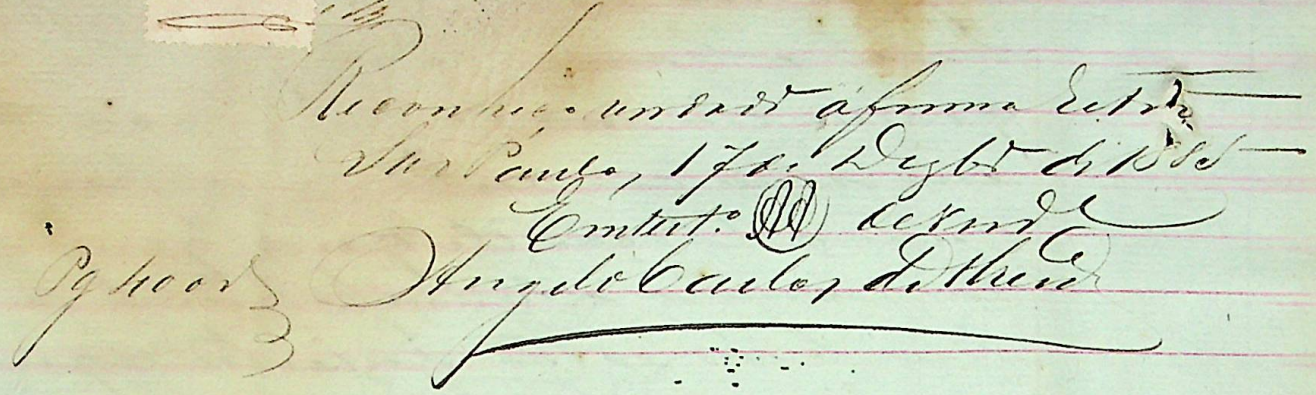 Reconheço verdadrª a firma retro
São Paulo, 17 de Dezbrº de 1885
Em testº de verdº
Pg
Angelo Carlos de